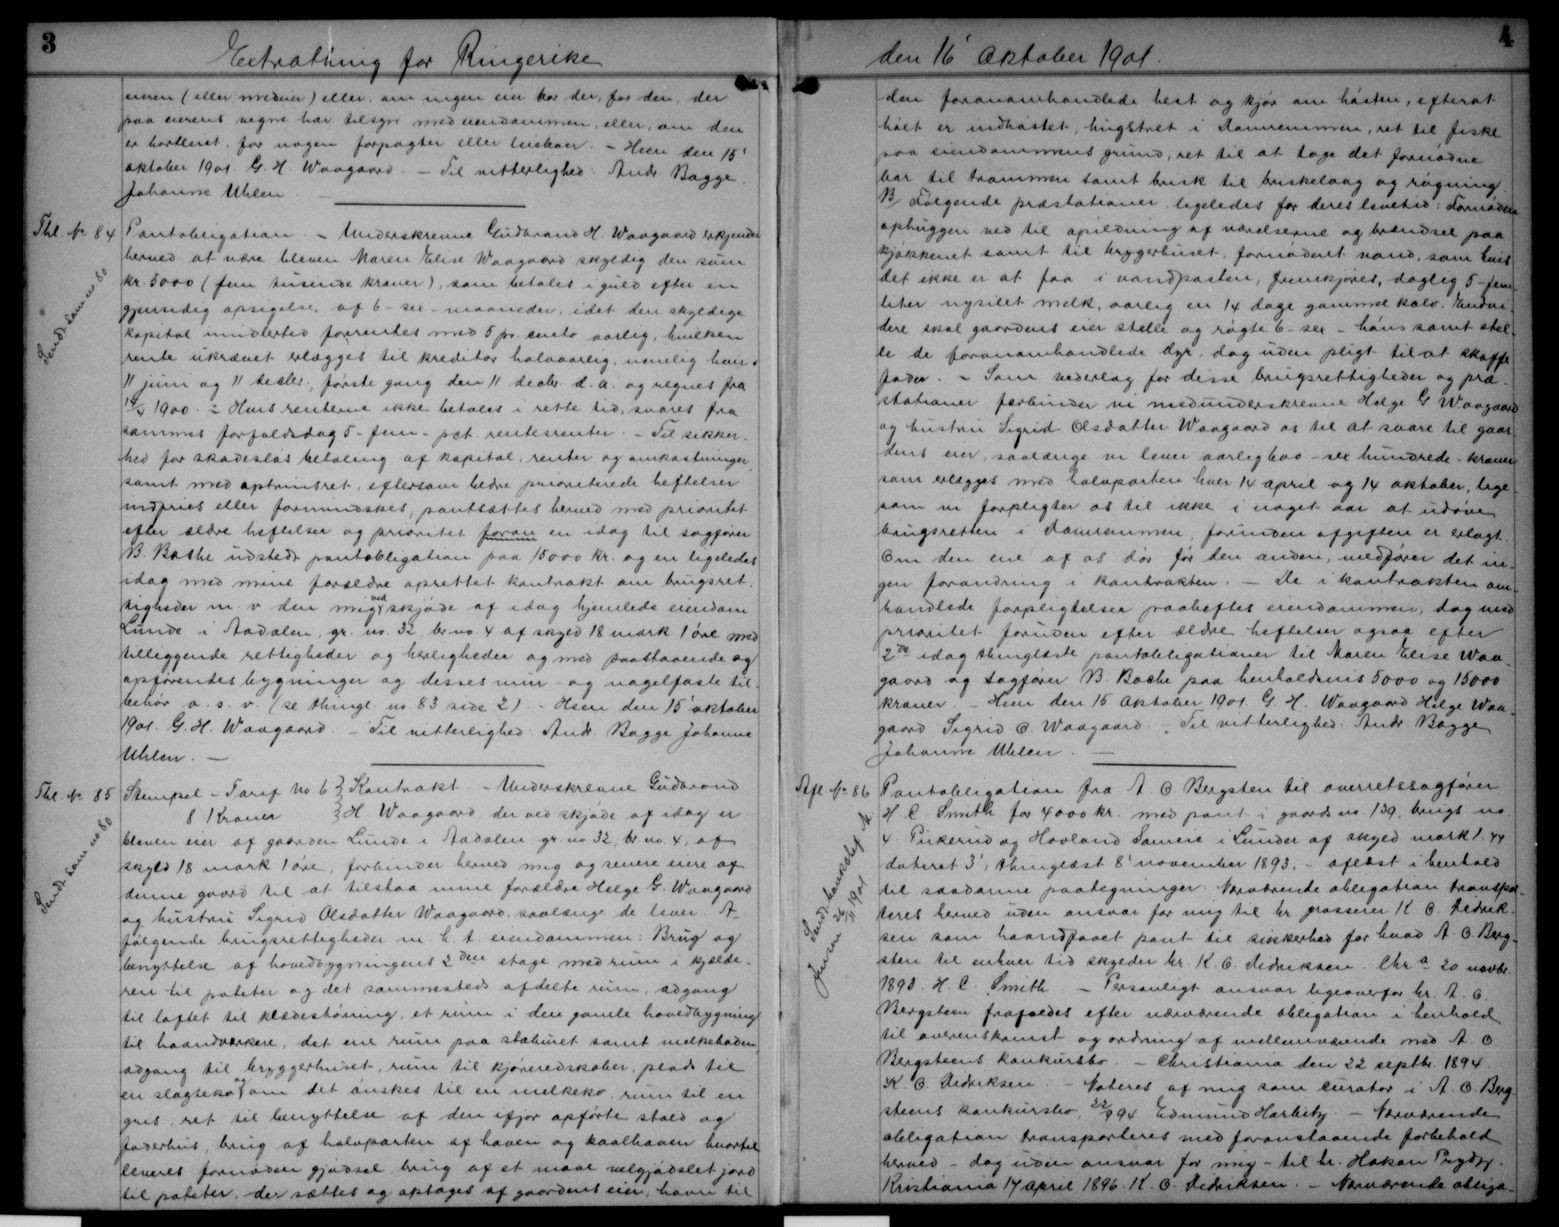 3
Extrathing for Ringerike
eieren (eller medeier) eller, om ingen eier bor der, for den, der
paa eierens vegne har tilsyn med eiendommen, eller, om den
er bortleiet, for nogen forpagter eller leieboer. - Heen den 15'
oktober 1901 G. H. Waagaard. - Til vitterlighed: Andr. Bagge
Johanne Uhlen. -
Thl. No 84
Sendt som no 80
Pantobligation. - Underskrevne Gudbrand H. Waagaard erkjender
herved at være bleven Maren Elise Waagaard skyldig den sum
kr. 5000 (fem tusinde kroner), som betales i guld efter en
gjensidig opsigelse af 6 - sex - maaneder, idet den skyldige
kapital imidlertid forrentes med 5 pr. cento aarlig, hvilken
rente ukrævet erlægges til kreditor halvaarlig, nemlig hver
11 juni og 11 decbr., første gang den 11 decbr. d. a. og regnes fra
14/4 1900. - Hvis renterne ikke betales i rette tid, svares fra
sammes forfaldsdag 5 - fem - pct. rentesrenter. - Til sikker-
hed for skadesløs betaling af kapital, renter og omkostninger,
samt med optrinsret, eftersom bedre prioriterede heftelser
indfries eller formindskes, pantsættes herved med prioritet
efter ældre heftelser og prioritet foran en idag til sagfører
B. Bache udstedt pantobligation paa 15000 kr. og en ligeledes
idag med mine forældre oprettet kontrakt om brugsret-
tigheder m. v. den mig ved skjøde af idag hjemlede eiendom
Lunde i Aadalen, gr. no. 32 br. no. 4 af skyld 18 mark 1 øre med
tilliggende rettigheder og herligheder og med paastaaende og
opførendes bygninger og disses mur- og nagelfaste til-
behør o. s. v. (se thingl. no. 83 side 2). - Heen den 15' oktober
1901. G. H. Waagaard. - Til vitterlighed: Andr. Bagge Johanne
Uhlen. -
Thl. No 85
Sendt som no 80
Stempel - Tarif No 6 } Kontrakt. - Underskrevne Gudbrand
8 Kroner } H. Waagaard, der ved skjøde af idag er
bleven eier af gaarden Lunde i Aadalen gr. no 32, br. no. 4, af
skyld 18 mark 1 øre, forbinder herved mig og senere eiere af
denne gaard til at tilstaa mine forældre Helge G. Waagaard
og hustru Sigrid Olsdatter Waagaard, saalænge de lever. A.
følgende brugsrettigheder m. h. t. eiendommen: Brug og
benyttelse af hovedbygningens 2den etage med rum i kjælde-
ren til poteter og det sammesteds afdelte rum, adgang
til loftet til klædestørring, et rum i den gamle hovedbygning
til haandværkere, det ene rum paa staburet samt melkeboden,
adgang til bryggerhuset, rum til kjøreredskaber, plads til
en slagteko og om det ønskes til en melkeko, rum til en
gris, ret til benyttelse af den ifjor opførte stald og
foderhus, brug af halvparten af haven og kaalhaven hvortil
leveres fornøden gjødsel, brug af et maal velgjødslet jord
til poteter, der sættes og optages af gaardens eier, havn til
4
den 16' Oktober 1901.
den foranomhandlede hest og kjør om høsten, efterat
høiet er indhøstet, hugstret i Damremmen, ret til fiske
paa eiendommens grund, ret til at tage det fornødne
bar til trammen samt brisk til briskelaag og røgning.
B/ Følgende præstationer ligeledes for deres levetid: Fornøden
ophuggen ved til opildning af værelserne og brændsel paa
kjøkkenet samt til bryggerhuset, fornødent vand, som hvis
det ikke er at faa i vandposten, fremkjøres, daglig 5 - fem -
liter nysilet melk, aarlig en 14 dage gammel kalv. Endvi-
dere skal gaardens eier stelle og røgte 6 - sex - høns samt stel-
le de foranomhandlede dyr, dog uden pligt til at skaffe
foder. - Som vederlag for disse brugsrettigheder og præ-
stationer forbinder vi medunderskrevne Helge G Waagaard
og hustru Sigrid Olsdatter Waagaard os til at svare til gaar-
dens eier, saalænge vi lever aarlig 600 - sex hundrede - kroner
som erlægges med halvparten hver 14 april og 14 oktober, lige-
som vi forpligter os til ikke i noget aar at udøve
brugsretten i Damremmen, forinden afgiften er erlagt.
Om den ene af os dør før den anden, medfører det in-
gen forandring i kontrakten. - De i kontrakten om-
handlede forpligtelser paaheftes eiendommen, dog med
prioritet foruden efter ældre heftelser ogsaa efter
2de idag thinglæste pantobligationer til Maren Elise Waa-
gaard og sagfører B. Bache paa henholdsvis 5000 og 15000
kroner. - Heen den 15 Oktober 1901 G. H. Waagaard Helge Waa-
gaard Sigrid O. Waagaard. - Til vitterlighed: Andr. Bagge
Johanne Uhlen. -
Afl. No 86
Sendt bankchef M.
Jensen 26/11 1901
Pantobligation fra A. O Bergsten til overretssagfører
H. C. Smith for 4000 kr. med pant i gaards no. 139, brugs no
4 Pukerud og Hovland Sameie i Lunder af skyld mark 1.44
dateret 3', thinglæst 8' november 1893, - aflæst i henhold
til saadanne paategninger: Nærværende obligation transpor-
teres herved uden ansvar for mig til hr. grosserer K. O. Didrik-
sen som haandfaaet pant til sikkerhed for hvad A. O. Berg-
sten til enhver tid skylder hr. K. O. Didriksen. Chr.a 20 novbr.
1893. H. C. Smith. - Personligt ansvar ligeoverfor hr. A. O.
Bergsteen frafaldes efter nærværende obligation i henhold
til overenskomst og ordning af mellemværende med A. O
Bergsteens konkursbo. - Christiania den 22 septbr. 1894.
K. O. Didriksen. - Noteres af mig som curator i A. O. Berg-
steens konkursbo, 22/9 94 Edmund Harbitz. - Nærværende
obligation transporteres med foranstaaende forbehold
herved - dog uden ansvar for mig - til hr. Hakon Prydz.
Kristiania 17 april 1896. K. O. Didriksen. - Nærværende obliga-